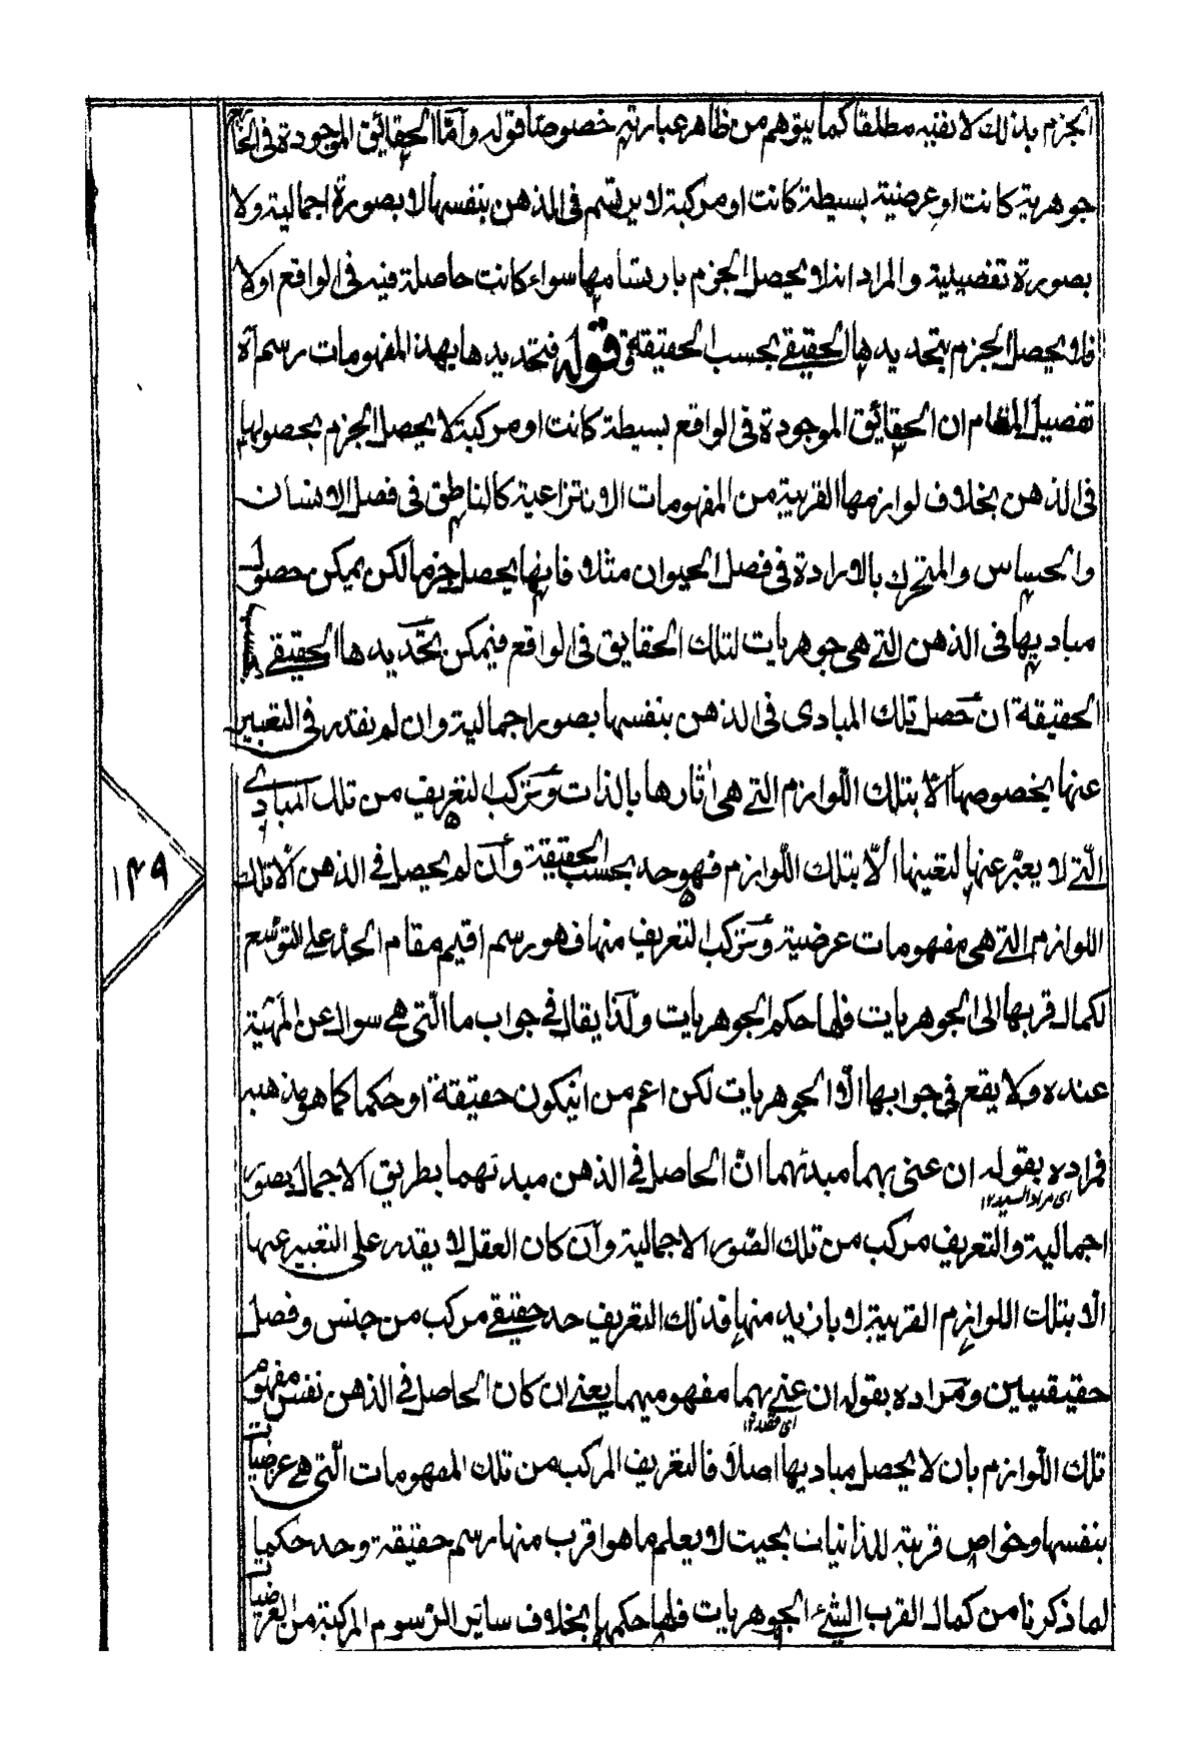 الجزم بذلك لا نفيه مطلقا كما يتوهم من ظاهر عبارته خصوصا قوله وامّا الحقائق الموجودة فى الخارج
جوهرية كانت او عرضية بسيطة كانت او مركبة لا يرتسم فى الذهن بنفسها لا بصورة اجمالية ولا
بصورة تفصيلية والمراد انه لا يحصل الجزم بارتسامها سواء كانت حاصلة فيه فى الواقع اولا
فلا يحصل الجزم بتحديدها الحقيقے بحسب الحقيقة قوله فتحديدها بهذه المفهومات رسم آه
تفصيل المقام ان الحقائق الموجودة فى الواقع بسيطة كانت او مركبة لا يحصل الجزم بحصولها
فى الذهن بخلاف لوازمها القريبة من المفهومات الانتزاعية كالناطق فى فصل الانسان
والحساس والمتحرك بالارادة فى فصل الحيوان مثلا فانها يحصل جزما لكن يمكن حصول
مباديها فى الذهن التے هى جوهريات لتلك الحقايق فى الواقع فيمكن تحديدها الحقيقے بحسب
الحقيقة ان حصل تلك المبادى فى الذهن بنفسها بصور اجمالية وان لم نقدر فى التعبير
عنها بخصوصها الّا بتلك اللّوازم التے هى اثارها بالذات وتركب التعريف من تلك المبادے
الّتے لا يعبّر عنها لتعينها الّا بتلك اللّوازم فهو حد بحسب الحقيقة وان لم يحصل فے الذهن الّا تلك
اللوازم التے هى مفهومات عرضية وتركب التعريف منها فهو رسم اقيم مقام الحد على التوسّع
لكمال قربها الى الجوهريات فلها حكم الجوهريات ولذا يقال فے جواب ما الّتى هے سوال عن المهيّة
عنده ولا يقع فى جوابها الّا الجوهريات لكن اعم من انيكون حقيقة او حكما كما هو مذهبه
فمراده بقوله ان عنى بهما مبدئهما انّ الحاصل فے الذهن مبدئهما بطريق الاجمال بصور
اى مراد السيد ١٢
اجمالية والتعريف مركب من تلك الصّور الاجمالية وان كان العقل لا يقدر على التعبير عنها
الّا بتلك اللوازم القريبة لا بازيد منها فذلك التعريف حد حقيقے مركب من جنس وفصل
حقيقيين ومراده بقوله ان عنے بهما مفهوميهما يعنے ان كان الحاصل فے الذهن نفس مفهومات
اى قصد ١٢
تلك اللّوازم بان لا يحصل مباديها اصلا فالتعريف المركب من تلك المفهومات الّتى هے عرضيات
بنفسها وخواص قريبة للذاتيات بحيث لا يعلم ما هو اقرب منها رسم حقيقة وحد حكما
لما ذكرنا من كمال القرب الى الجوهريات فلها حكمها بخلاف ساير الرّسوم المركبة من العرضيات
١٤٩